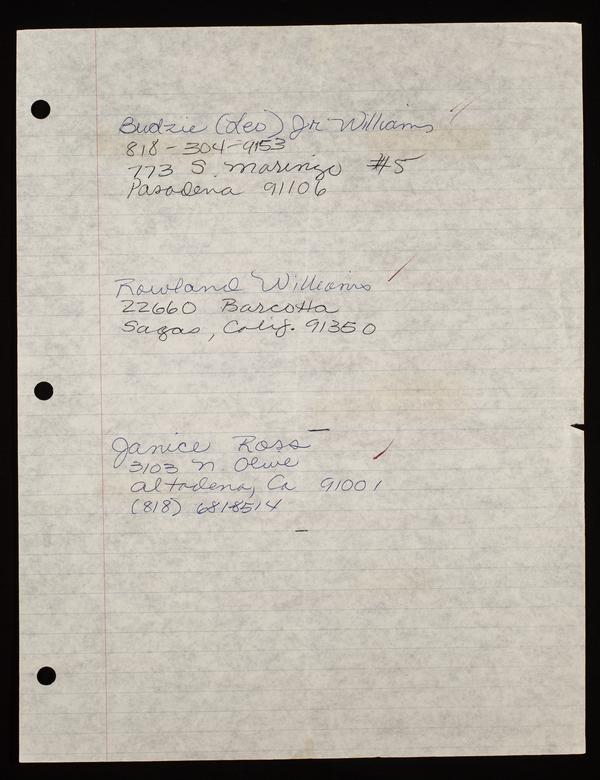 Budzie (Leo) Jr. Williams
818-304-9153
773 S. Marengo #5
Pasadena 91106
Rowland Williams
22660 Barcotta
Sagas, Calif. 91350
Janice Ross
3103 N. Olive
Altadena, Ca 91001
(818) 6818514